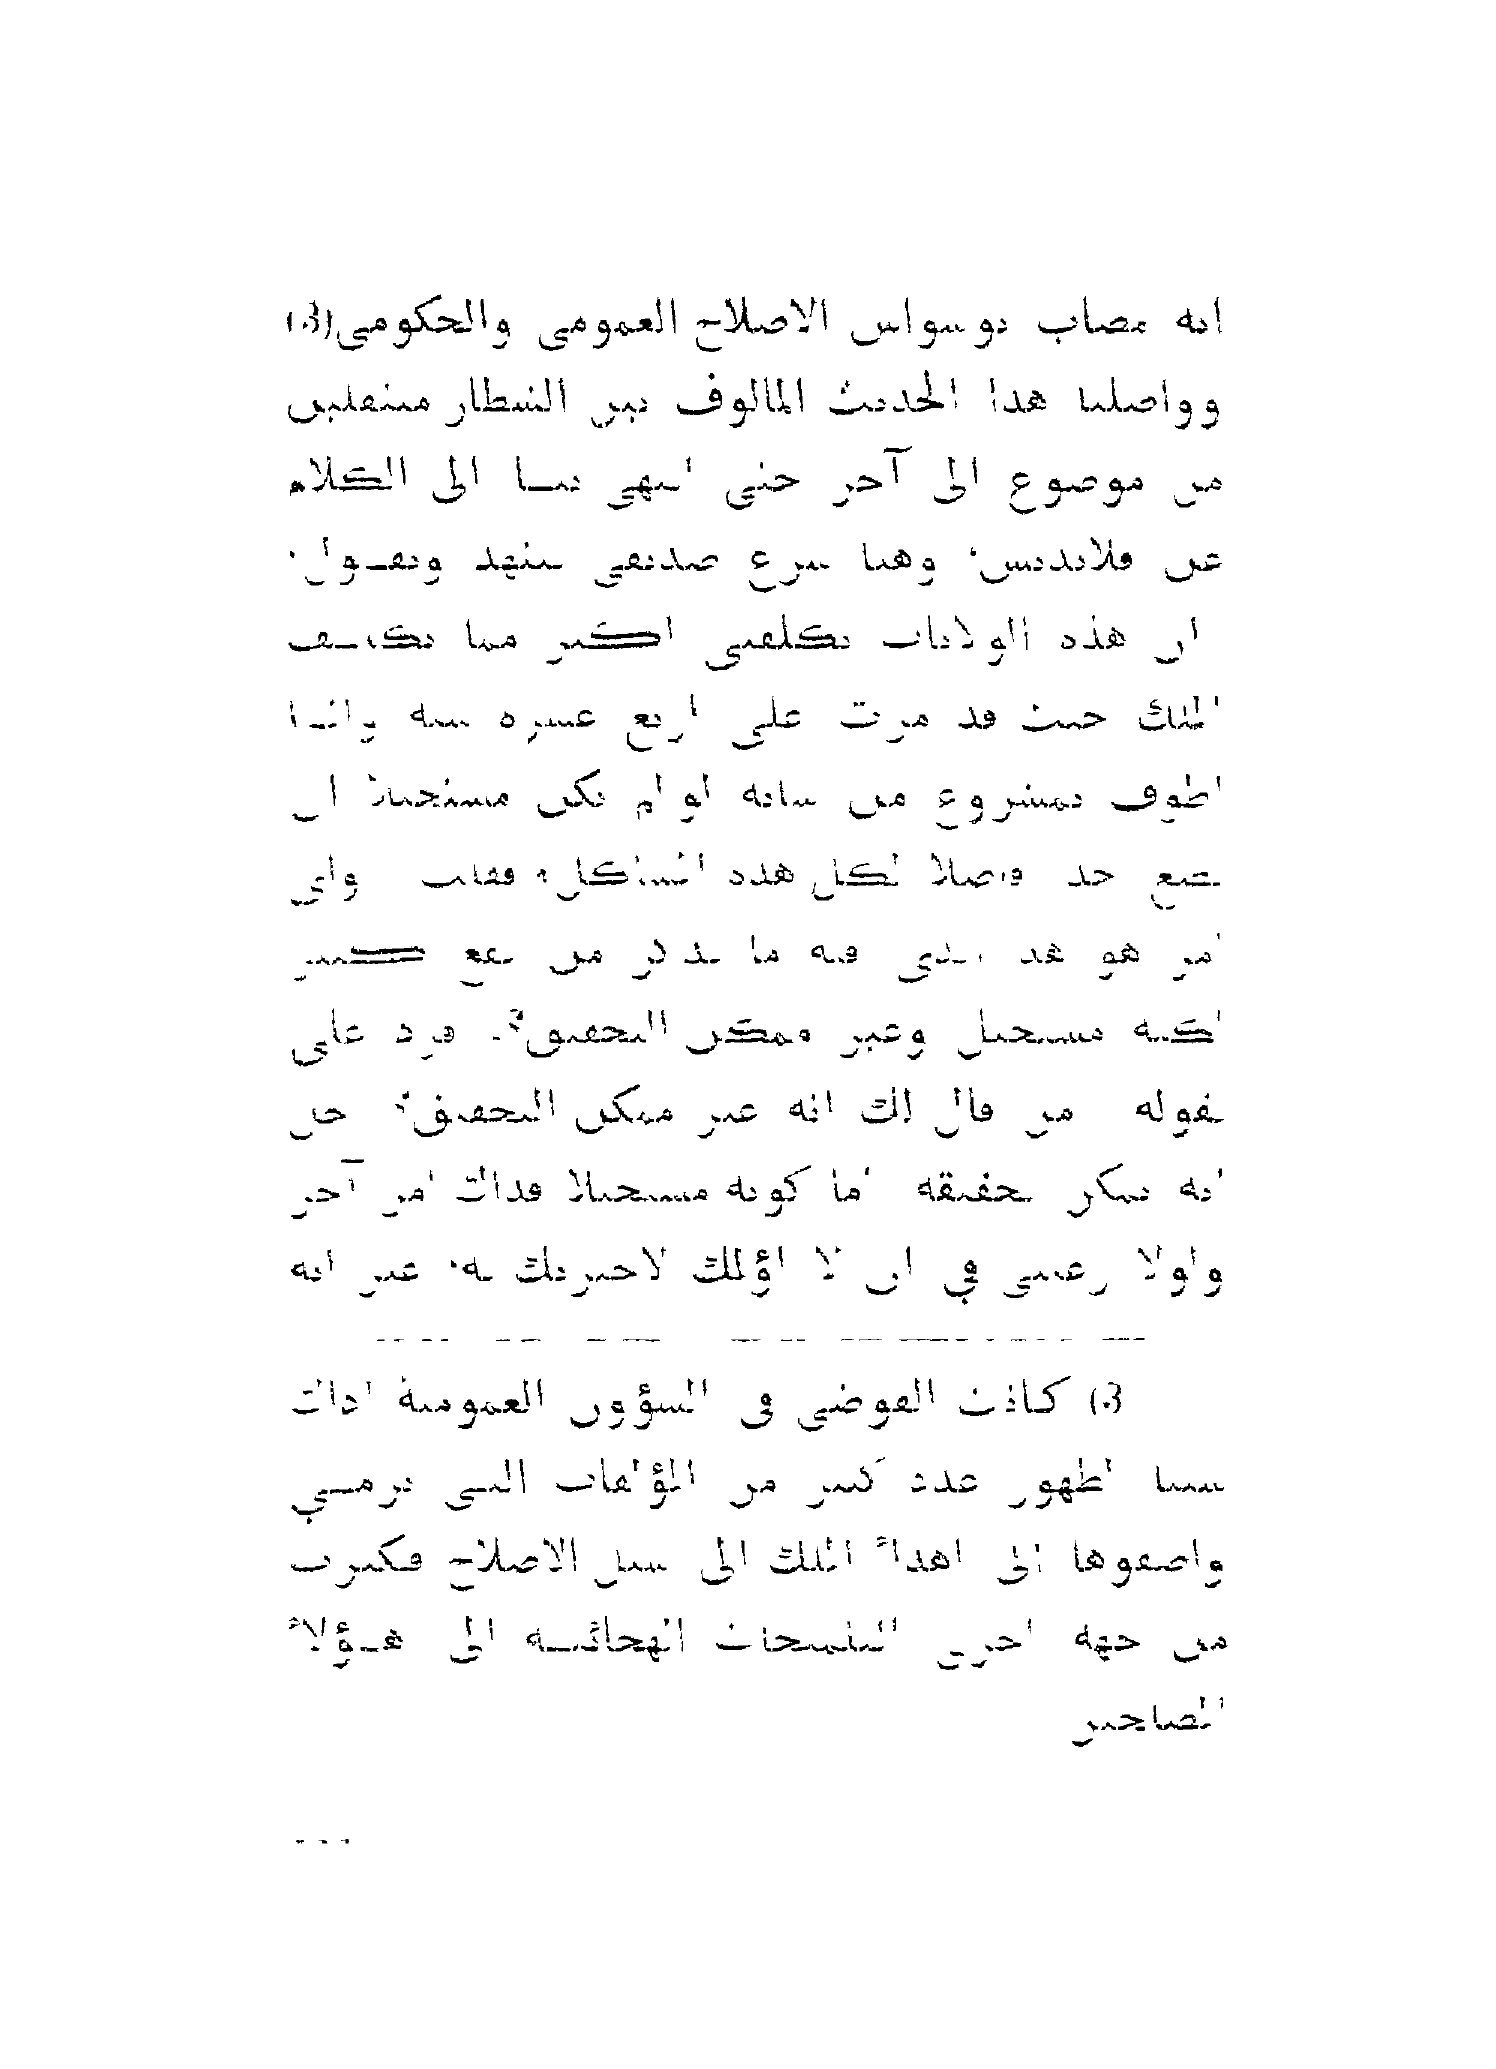 انه مصاب بوسواس الاصلاح العمومي والحكومي(3)
وواصلنا هذا الحديث المالوف بين الشطار منتقلين
من موضوع الى آخر حتى انتهى بنا الى الكلام
عن فلاندس، وهنا شرع صديقي يتنهد ويقول:
ان هذه الولايات تكلفني اكثر مما تكلف
الملك حيث قد مرت علي اربع عشرة سنة وانا
اطوف بمشروع من شانه لو لم يكن مستحيلا ان
يضع حد فاصلا لكل هذه المشاكل، فقلت واي
امر هو هذا الذي فيه ما تذكر من نفع كثير
لكنه مستحيل وغير ممكن التحقيق؟. فرد علي
بقوله من قال لك انه غير ممكن التحقيق؟ حل
انه يمكن تحقيقه اما كونه مستحيلا فذاك امر آخر
ولولا رغبتي في ان لا اؤلمك لاخبرتك به. غير انه
3) كانت الفوضى في الشؤون العمومية اذاك
سببا لظهور عدد كبير من المؤلفات التي ترمي
واضعوها الى اهداء الملك الى سبل الاصلاح فكثرت
من جهة اخرى التلميحات الهجائية الى هؤلاء
المصلحين